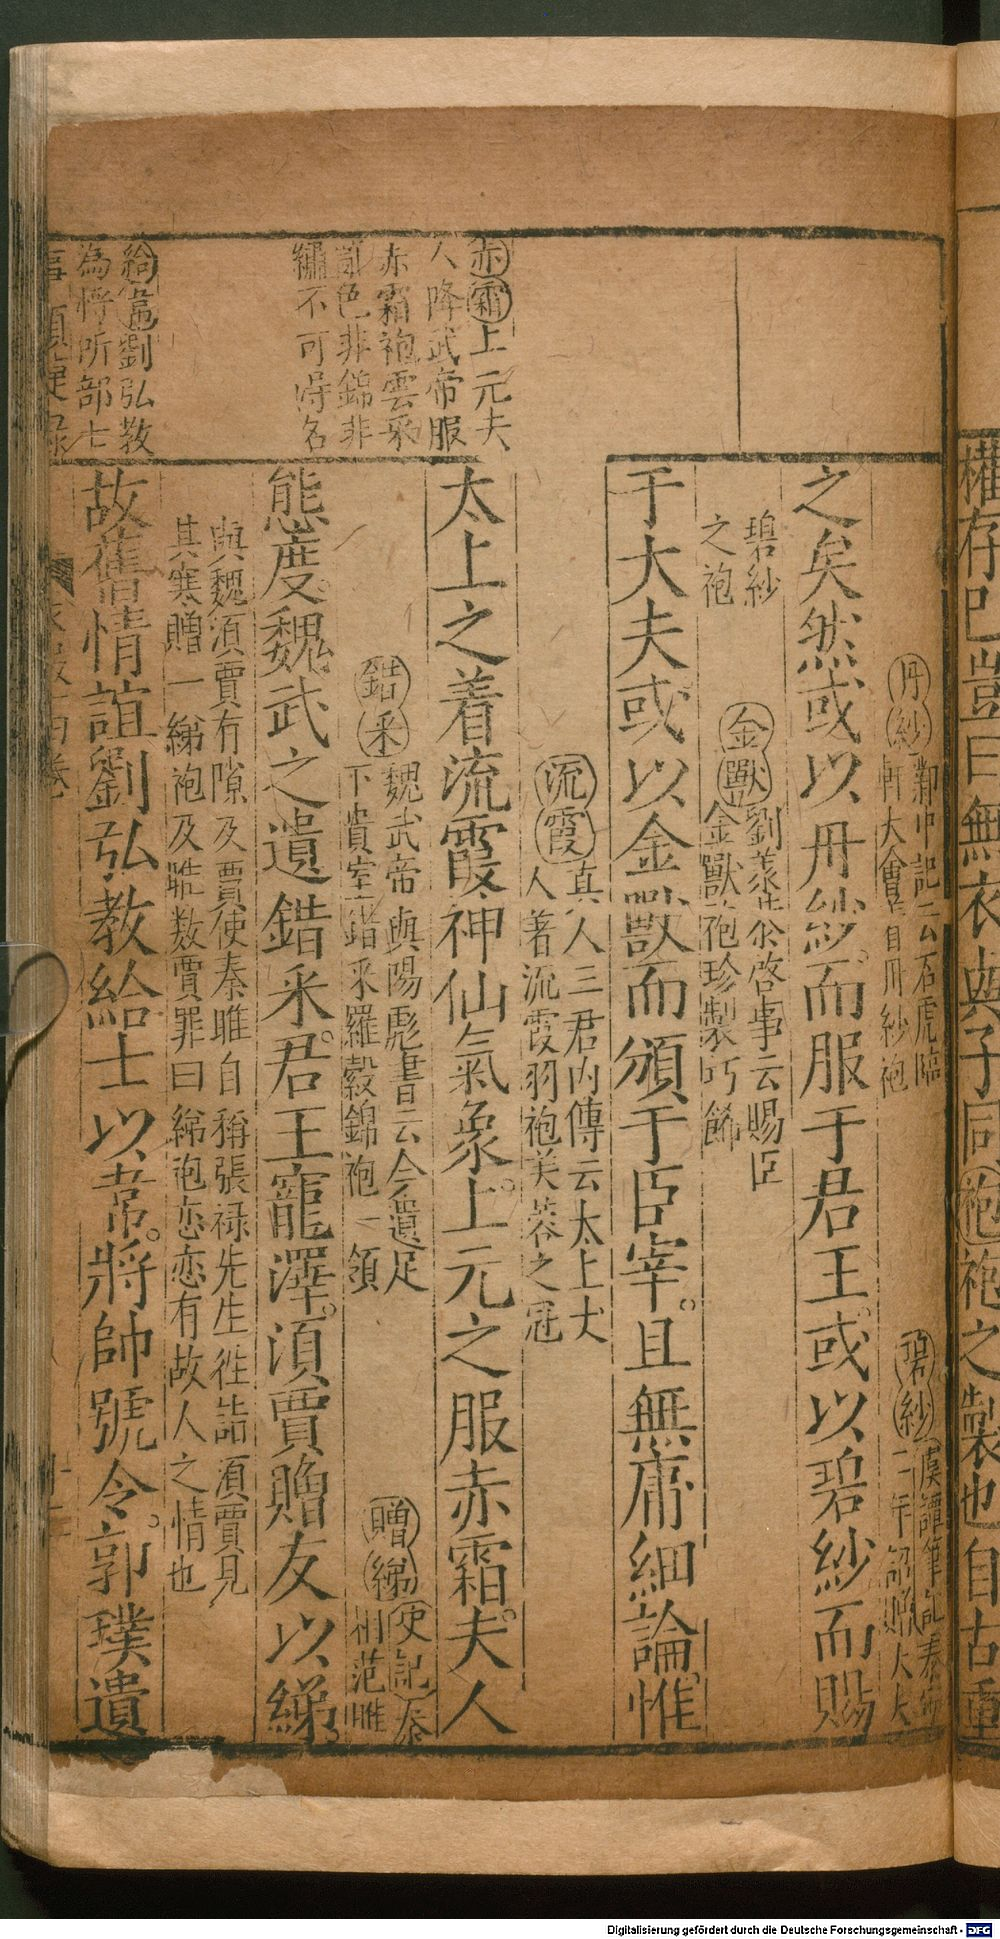 權存巳豈曰無衣與子同袍袍之製也自古重
丹紗鄴中記云石虎臨
軒大會着自丹紗袍
碧紗
二年詔賜大夫
之矣然或以丹紗而服于君王或以碧紗而賜
碧紗
之袍
金獸劉孝余啓事云賜臣
金獸袍珍製巧餙
于大夫或以金獸而頒于臣宰且無庸細論惟
流霞真人三君内傳云太上丈
人着流霞羽袍芙蓉之冠
赤霜上元夫
人降武帝服
赤霜袍雲彩
亂色非錦非
繡不可得名
太上之着流霞神仙氣象上元之服赤霜夫人
錯采魏武帝與陽彪書云今遺足
下貴室錯采羅縠錦袍一領
贈綈史記秦
相范睢
態度魏武之遺錯采君王寵澤湏賈贈友以綈
與魏湏賈有隙及賈使秦睢自稱張禄先生徃詣湏賈見
其寒贈一綈袍及睢数賈罪曰綈袍恋恋有故人之情也
給韋劉弘教
為將所部士
故舊情誼劉弘教給士以韋將帥號令郭璞遺
Digitalisierung gefördert durch die Deutsche Forschungsgemeinschaft - DFG